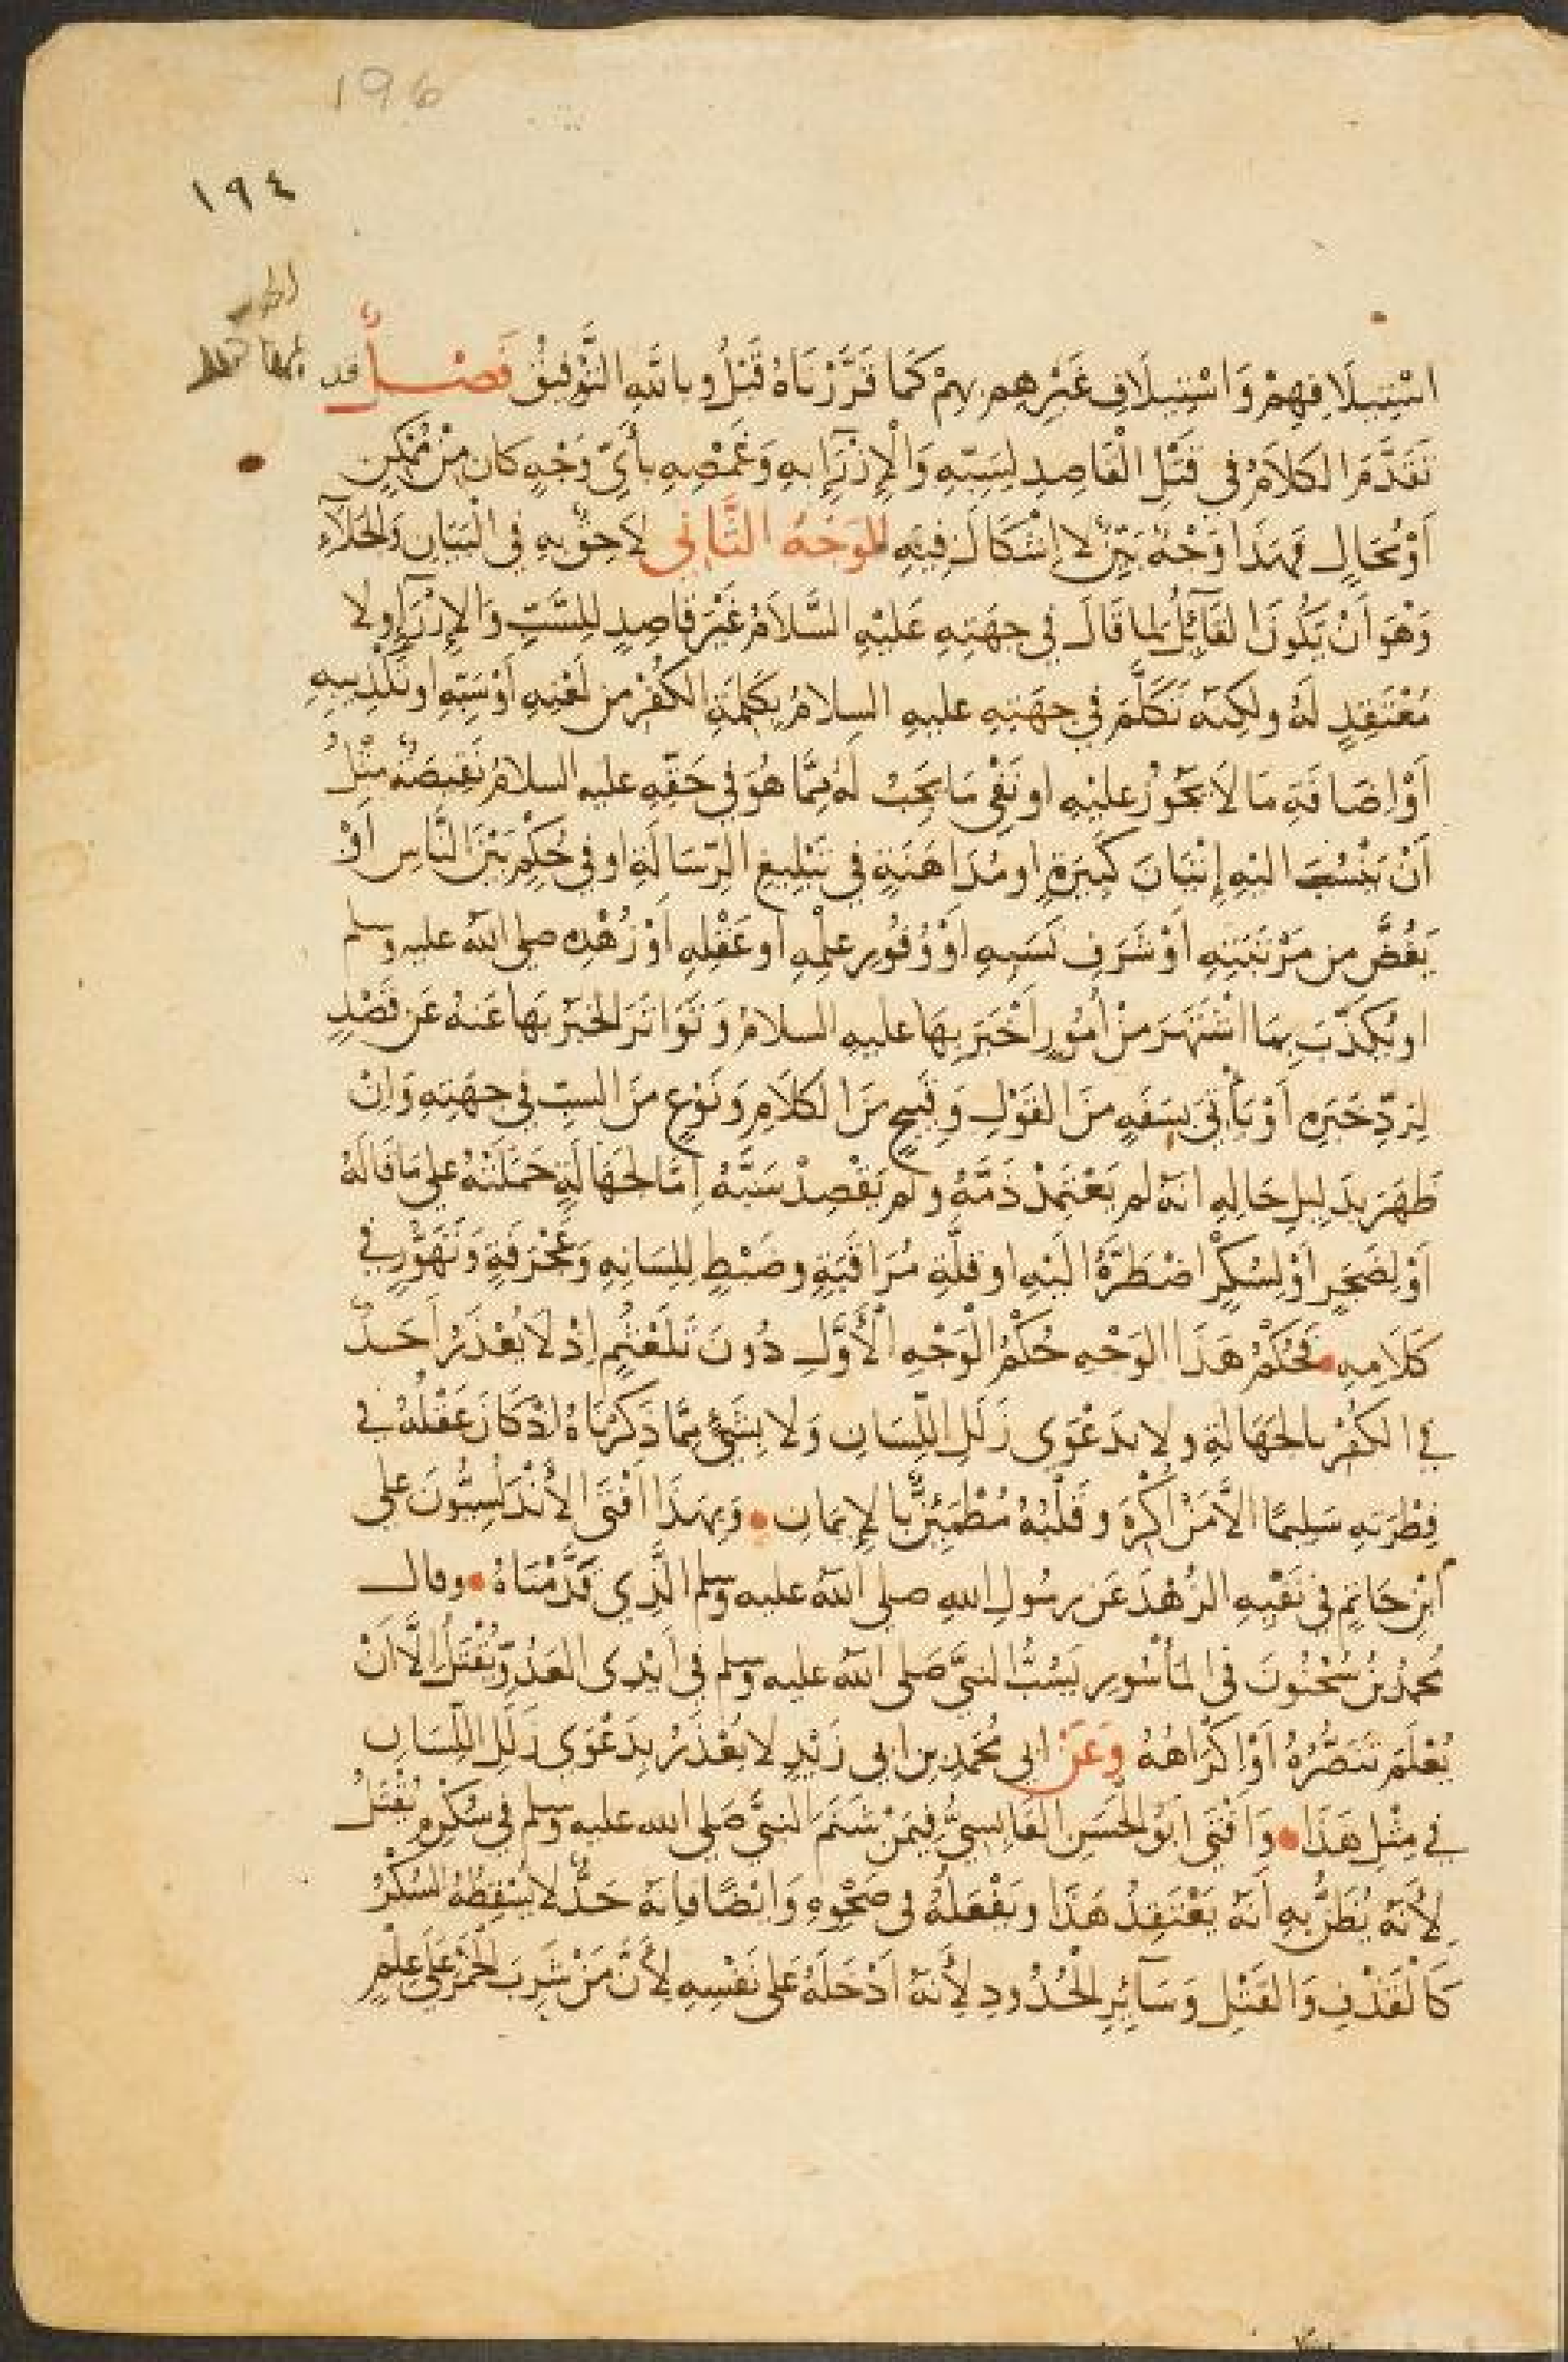 196
١٩٤
اسْتِيلَافِهِمْ وَاسْتِيلَافِ غَيْرِهِم بِهِمْ كَمَا قَرَّرْنَاهُ قَبْلُ وبالله التَّوْفِيقْ فَصْلٌ قد
تَقَدَّمَ الكَلَامُ فِي قَتْلِ القَاصِدِ لِسَبِّهِ وَالْإِزْرَآءِ بِهِ وَغَمْصِهِ بأَيِّ وَجْهٍ كان مِنْ مُمْكِنٍ
أَوْ مُحَالٍ فَهَذَا وَجْهٌ بَيِّنٌ لا إشْكَالَ فِيهِ الوَجْهُ الثَّانِي لَاحِقٌ بِهِ فِي الْبَيَانِ وَالجَلَآءِ
وَهْوَ أَنْ يَكُونَ القَآئِلُ لما قَالَ فِي جِهَتِهِ عَلَيْهِ السَّلَامُ غَيْرَ قَاصِدٍ لِلسَّبِّ وَالإِزْرَآءِ ولا
مُعْتَقِدٍ لَهُ ولكِنّه تَكَلَّمَ فِي جِهَتِهِ عليهِ السلامُ بِكَلِمَةِ الكُفْرِ من لَعْنِهِ أَوْ سَبِّهِ او تَكْذِيبِهِ
أَوْ إِضَافَةِ مَا لَا يَجُوزُ عليْهِ او نَفْيِ مَا يَجِبُ لَهُ مِمَّا هُوَ فِي حَقِّهِ عليه السلامُ نَقِيصَةٌ مثْلُ
أَنْ يَنْسُبَ اليْهِ إِتْيَانَ كَبِيرَةٍ او مُدَاهَنَةٍ فِي تَبْلِيغِ الرِّسَالَةِ او فِي حُكْمٍ بَيْنَ النَّاسِ أَوْ
يَغُضَّ مِن مَرْتَبَتِهِ أَوْ شَرَفِ نَسَبِهِ أَوْ وُفُورِ عِلْمِهِ أو عَقْلِهِ أَوْ زُهْدِهِ صلى الله عليه وسلم
او يُكَذِّبَ بِمَا اشْتَهَرَ مِنْ أُمُورٍ أَخْبَرَ بِهَا عليهِ السلامُ وَتَوَاتَرَ الخَبَرُ بِهَا عَنهُ عَن قَصْدٍ
لِرَدِّ خَبَرِهِ أَوْ يَأْتِيَ بِسَفَهٍ مِنَ القَوْلِ وَقَبِيحٍ مِنَ الكَلَامِ وَنَوْعٍ مِنَ السبِّ فِي جِهَتِهِ وَإنْ
ظَهَرَ بِدَلِيلِ حَالِهِ أنّه لم يَعْتَمِدْ ذَمَّهُ ولَم يَقْصِدْ سَبَّهُ إِمَّا لِجَهَالَةٍ حَمَلَتْهُ على مَا قَالَهُ
أَوْ لِضَجَرٍ أَوْ لِسُكْرٍ اضْطَرَّهُ الَيْهِ او قِلَّةِ مُرَاقَبَةٍ وضَبْطٍ لِلِسَانِهِ وَعَجْرَفَةٍ وَتَهَوُّرٍ في
كَلَامِهِ فَحُكْمُ هَذَا الوَجْهِ حُكْمُ الْوَجْهِ الْأَوَّلِ دُونَ تَلَعْثُمٍ إِذْ لَا يُعْذَرُ أَحَدٌ
فِي الكُفْرِ بالجَهَالَةِ ولا بِدَعْوَى زَلَلِ اللِّسَانِ وَلا بِشَيْءٍ مِمَّا ذَكَرْنَاهُ إِذْ كَانَ عَقْلُهُ في
فِطْرَتِهِ سَلِيمًا الَّا مَنْ أُكْرِهَ وَقَلْبُهُ مُطْمَئِنٌّ بالإيمَانِ وَبِهَذَا افْتَى الأَنْدَلُسِيُّونَ على
ابْنِ حَاتِمٍ فِي نَفْيِهِ الزُّهْدَ عَن رسُولِ اللهِ صلى الله عليه وسلم الَّذِي قَدَّمْنَاهُ وقال
محمدُ بْنُ سُحْنُونَ فِي المَأْسُورِ يَسُبُّ النبيَّ صَلى الله عليه وسلم فِي أَيْدِى العَدُوِّ يُقْتَلُ إلَّا أنْ
يُعْلَمَ تَنَصُّرُهُ أَوْ إكْرَاهُهُ وَعَنْ ابي مُحَمَّدِ بن ابي زَيْدٍ لا يُعْذَرُ بِدَعْوَى زَلَلِ اللِّسَانِ
فِي مِثْلِ هَذَا وَأفْتَى أَبُو الحَسَنِ القَابِسِيُّ فِيمَنْ شَتَمَ النبيَّ صَلى الله عليه وسلم فِي سُكْرِهِ يُقْتَلُ
لِأَنّهُ يُظَنُّ بِهِ أَنّهُ يَعْتَقِدُ هَذَا وَيَفْعَلُهُ فِي صَحْوِهِ وَايْضًا فإنّهُ حَدٌّ لا يُسْقِطُهُ السُّكْرُ
كَالْقَذْفِ وَالقَتْلِ وَسَآئِرِ الْحُدُودِ لِأَنّهُ أَدْخَلَهُ عَلى نَفْسِهِ لِأَنَّ مَنْ شَرِبَ الخَمْرَ عَلَى عِلْمٍ